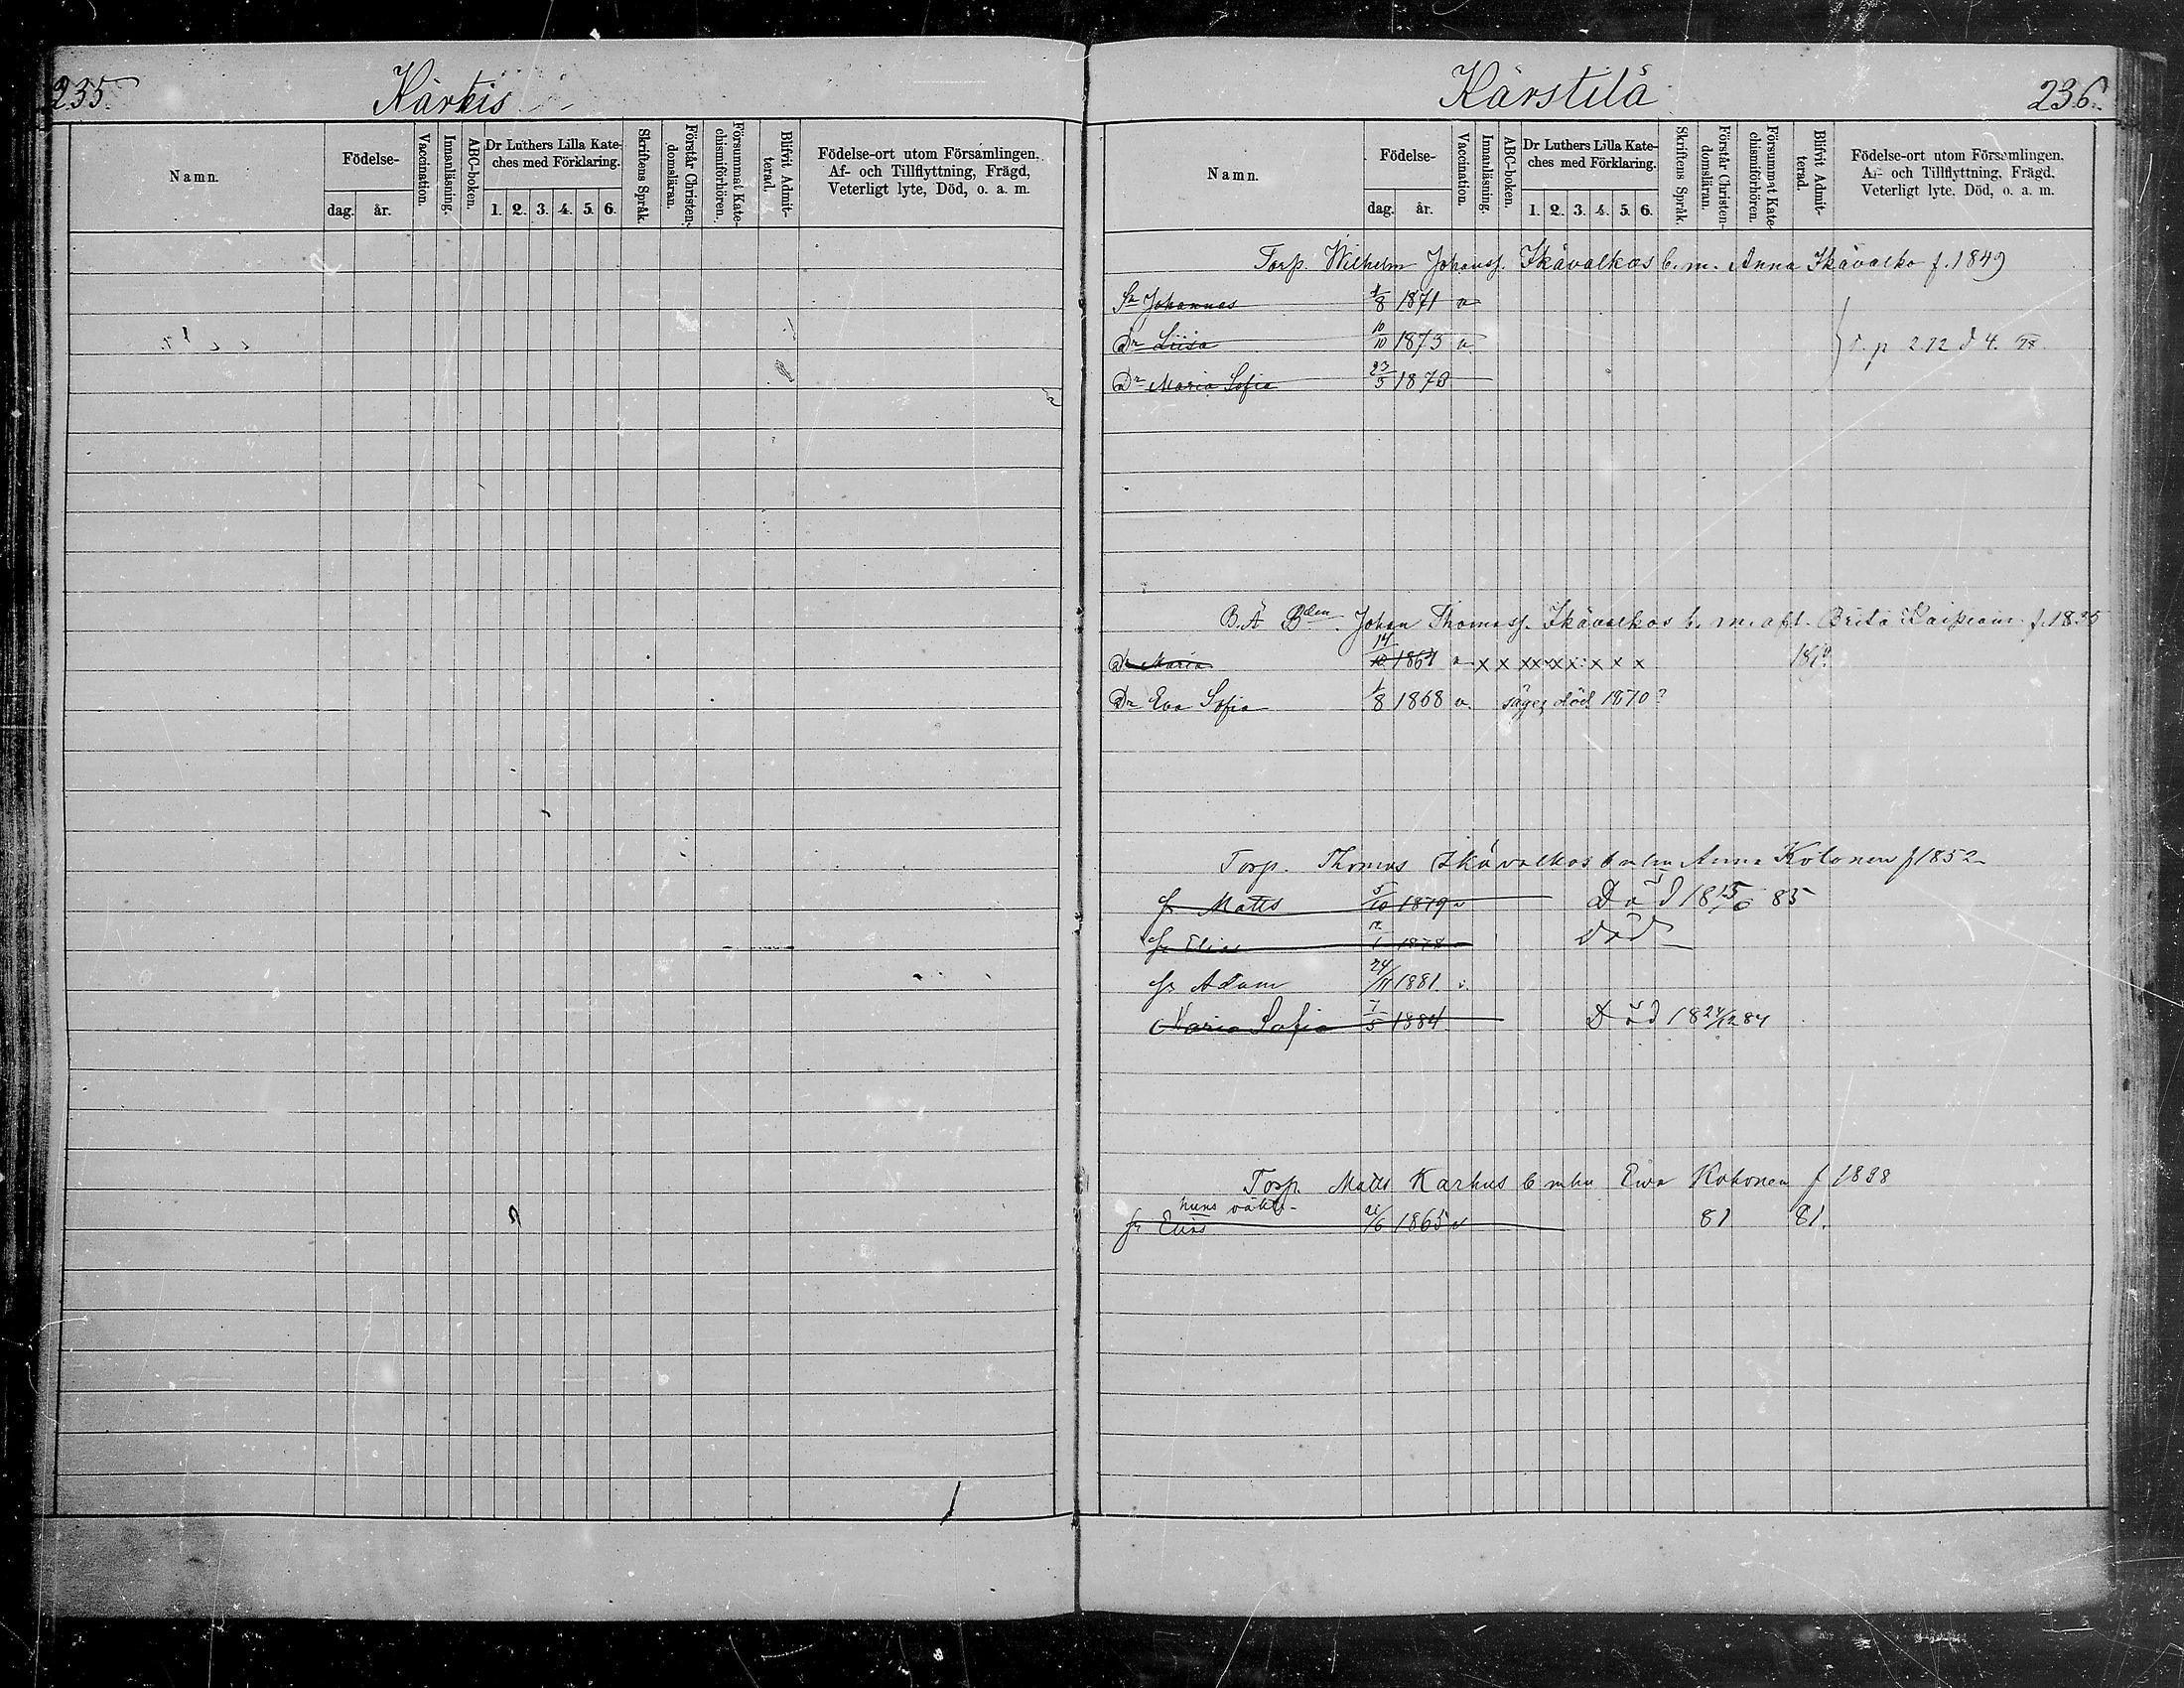 235.
Kärtis
Namn.
Födelse-
dag.
år.
Vaccination.
Innanläsning.
ABC-boken.
Dr Luthers Lilla Kate-
ches med Förklaring.
1. 2. 3. 4. 5. 6.
Skriftens Språk.
Förstår Christen-
domsläran.
Försummat Kate-
chismiförhören.
Blifvit Admit-
terad.
Födelse-ort utom Församlingen.
Af- och Tillflyttning, Frägd,
Veterligt lyte, Död, o. a. m.
Kärstilä
236.
Namn.
Födelse-
dag.
år.
Vaccination.
Innanläsning.
ABC-boken.
Dr Luthers Lilla Kate-
ches med Förklaring.
1. 2. 3. 4. 5. 6.
Skriftens Språk.
Förstår Christen-
domsläran.
Försummat Kate-
chismiförhören.
Blifvit Admit-
terad.
Födelse-ort utom Församlingen.
Af- och Tillflyttning. Frägd.
Veterligt lyte. Död, o. a. m.
Torp. Wilhelm Johanss. Ikävalkos b. m. Anna Ikävalko f. 1849
Sn Johannes 1/8 1871 v
Dr Liisa 10/10 1873 v
p 272
Dr Maria Sofia 23/5 1878
B. Ä Bden Johan Thomass. Ikävalkos b. m. afl. Brita f. 1835
Dr Maria 14/10 1864 v x x x x x x x x x
Dr Eva Sofia 1/8 1868 v. säges död 1870?
Torp. Thomas Ikävalkos b m hu Anna Kolonen f 1852
Sn Matts 5/10 1879 v Död 18 15/6 85
Sn Elias Död
Sn Adam 24/11 1881 v.
Maria Sofia 7/5 1884 Död 18 24/12 84
Torp. Matts Karhus b m hu Ewa Kokonen f 1838
hans
Sn Elias 21/6 1865 v 81 81.